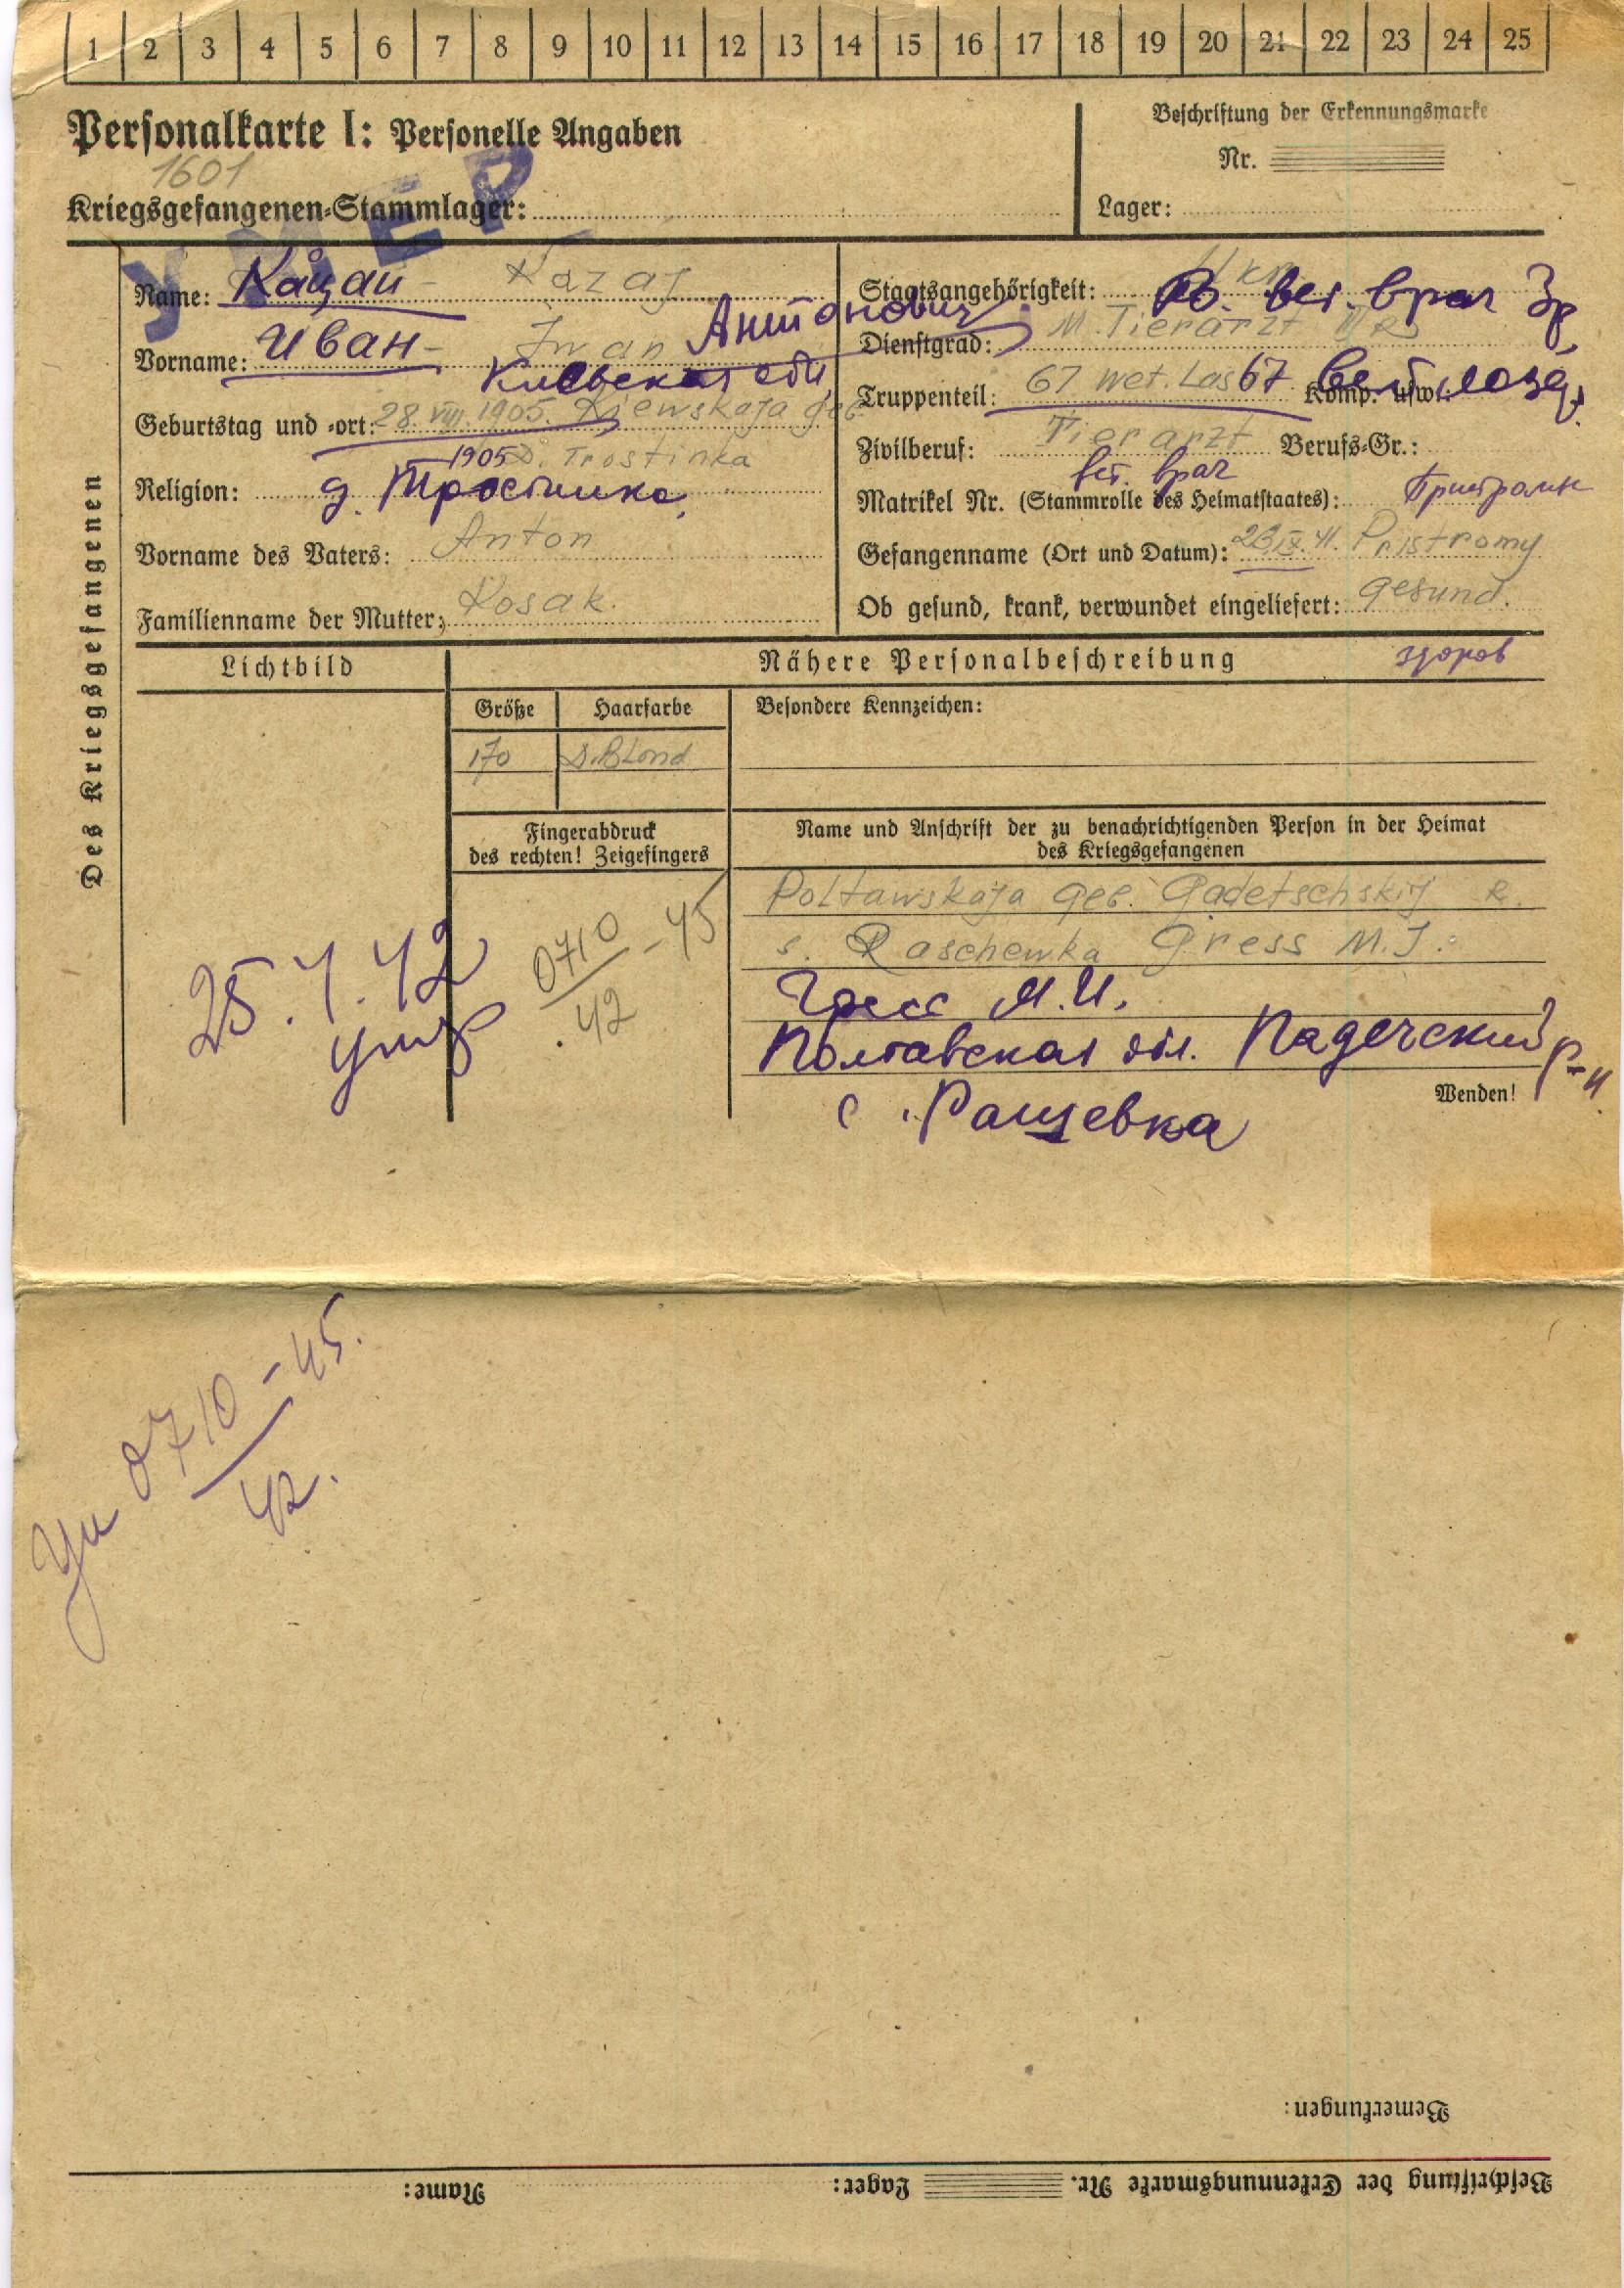 1 2 3 4 5 6 7 8 9 10 11 12 13 14 15 16 17 18 19 20 21 22 23 24 25
Personalkarte I: Personelle Angaben
Beschriftung der Erkennungsmarke
Nr.
1601
Kriegsgefangenen-Stammlager:
Lager:
УМЕР
Des Kriegsgefangenen
Name: Кацан - Kazaj
Vorname: Иван - Iwan Антонович
Киевская обл
Geburtstag und -ort: 28. VIII. 1905. Kiewskaja geb.
1905 D. Trostinka
Religion: д. Тростинка.
Vorname des Vaters: Anton
Familienname der Mutter: Kosak.
Staatsangehörigkeit: Ukr. вет. врач 3р
Dienstgrad: M. Tierarzt III R
Truppenteil: 67 wet. Las 67. Вет. лазар. Komp. usw.:
Zivilberuf: Tierarzt Berufs-Gr.:
вет. врач
Matrikel Nr. (Stammrolle des Heimatstaates): Пристромы
Gefangenname (Ort und Datum): 23 IX. 41. Pristromy
Ob gesund, krank, verwundet eingeliefert: gesund.
здоров
Lichtbild
Nähere Personalbeschreibung
Größe Haarfarbe Besondere Kennzeichen:
170 D.Blond
Fingerabdruck
des rechten! Zeigefingers
Name und Anschrift der zu benachrichtigenden Person in der Heimat
des Kriegsgefangenen
Poltawskaja geb. Gadetschskij R.
s. Raschewka Gress M.I.
Гресс М.И.
Полтавская обл. Падечский р-н
с. Ращевка
Wenden!
25.4.42
умер
0710 - 45
42
Ум 0710 - 45.
42.
Bemerkungen:
Beschriftung der Erkennungsmarke Nr. Lager: Name: